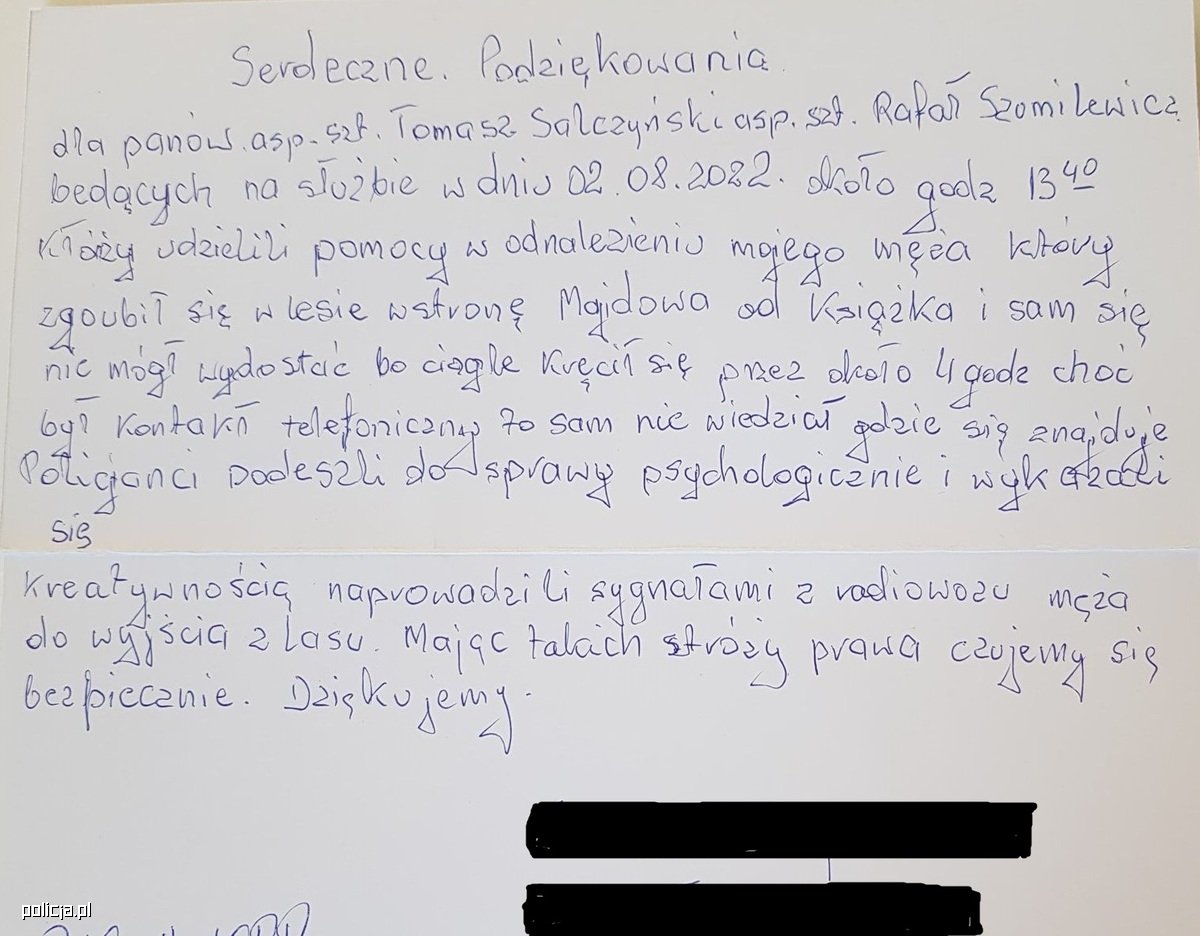 Serdeczne. Podziękowania
dla panów. asp. szt. Tomasz Salczyński asp. szt. Rafał Szomilewicz
bedących na służbie w dniu 02.08.2022. około godz 13 40
Którzy udzielili pomocy w odnalezieniu mojego męża który
zgoubił się w lesie wstronę Majdowa od Książka i sam się
nie mógł wydostać bo ciągle kręcił się przez około 4 godz choć
był kontakt telefoniczny to sam nie wiedział gdzie się znajduje
Policjanci podeszli do sprawy psychologicznie i wykazali
się
kreatywnością naprowadzili sygnałami z radiowozu męża
do wyjścia z lasu. Mając takich stróży prawa czujemy się
bezpiecznie. Dziękujemy.
policja.pl